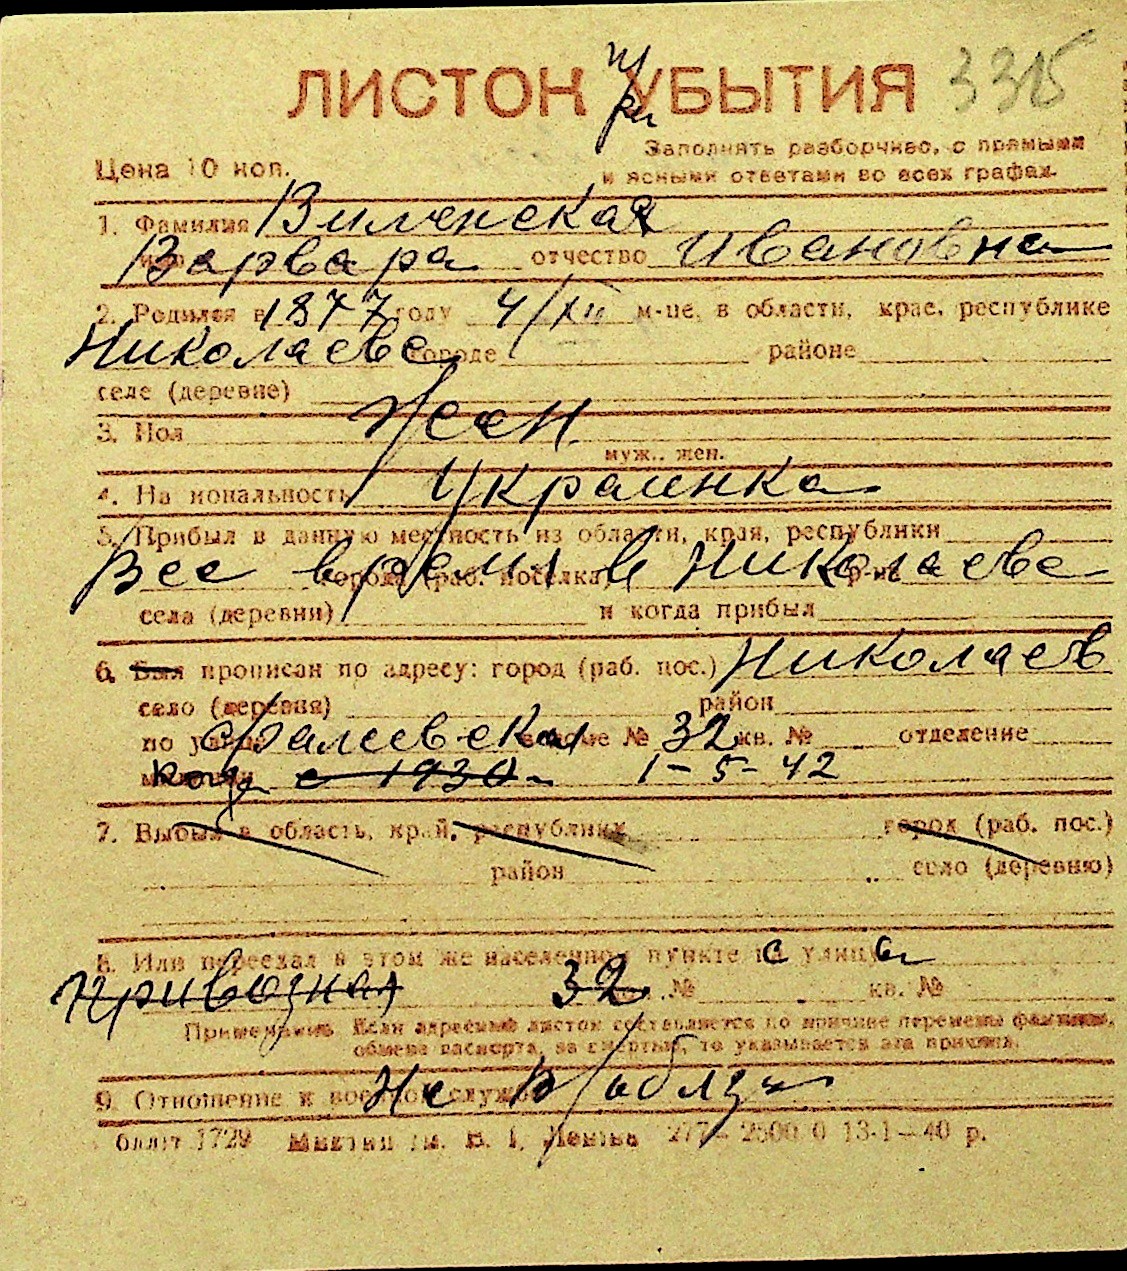 ЛИСТОК УБЫТИЯ 3315
при
Цена 10 коп.
Заполнять разборчиво, с прямыми
и ясными ответами во всех графах.
1. Фамилия Виленская
имя Варвара отчество Ивановна
2. Родился в 1877 году 4/XII м-це, в области, крае, республике
Николаеве городе районе
селе (деревне)
3. Пол Жен.
муж., жен.
4. Национальность Украинка
5. Прибыл в данную местность из области, края, республики
Все время в Николаеве
города (раб. поселка) р-на
села (деревни) и когда прибыл
6. Был прописан по адресу: город (раб. пос.) Николаев
село (деревня) район
по улице Фалеевская в доме № 32 кв. № отделение
милиции с 1930 1-5-42
7. Выбыл в область, край, республику город (раб. пос.)
район село (деревню)
8. Или переехал в этом же населенном пункте с улицы
Привозная 32 № кв. №
Примечание. Если адресный листок составляется по причине перемены фамилии,
обмена паспорта, за смертью, то указывается эта причина.
9. Отношение к военной службе Не в/обяз
Облліт 1729 2500 0 13-1-40 р.